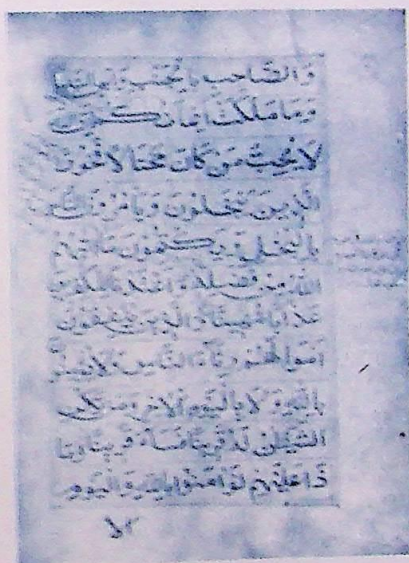 والصاحب بالجنب وابن السبيل
وما ملكت ايمانكم
لا يحب من كان مختالا فخورا
الذين يبخلون ويامرون الناس
بالبخل ويكتمون ما اتيهم
الله من فضله واعتدنا للكفرين
عذابا مهينا والذين ينفقون
اموالهم رئاء الناس ولا يؤمنون
بالله ولا باليوم الاخر ومن يكن
الشيطن له قرينا فساء قرينا وما
ذا عليهم لو امنوا بالله واليوم